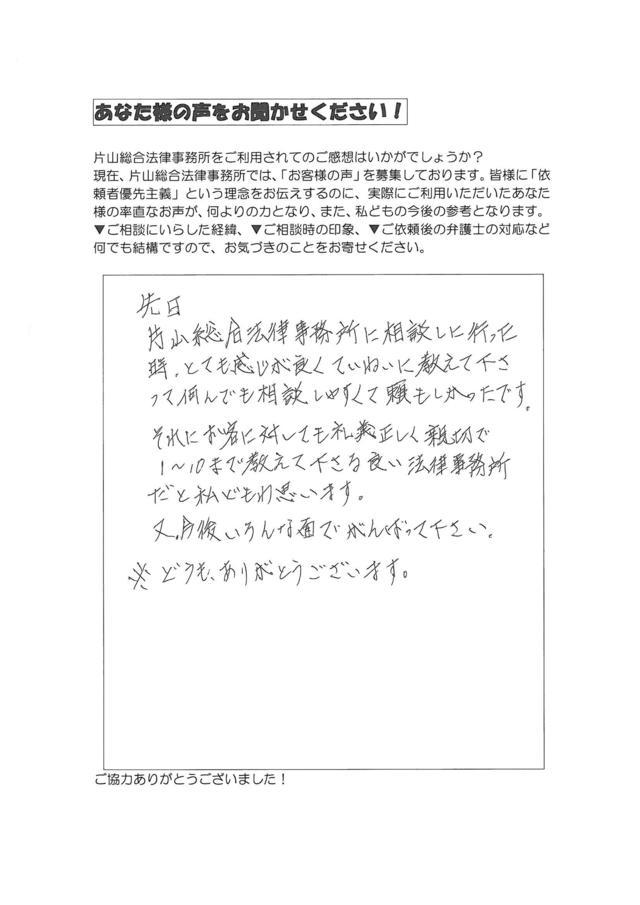 あなた様の声をお聞かせください!
片山総合法律事務所をご利用されてのご感想はいかがでしょうか?
現在、片山総合法律事務所では、「お客様の声」を募集しております。皆様に「依
頼者優先主義」という理念をお伝えするのに、実際にご利用いただいたあなた
様の率直なお声が、何よりの力となり、また、私どもの今後の参考となります。
▼ご相談にいらした経緯、▼ご相談時の印象、▼ご依頼後の弁護士の対応など
何でも結構ですので、お気づきのことをお寄せください。
先日
片山総合法律事務所に相談しに行った
時、とても感じが良くていねいに教えて下さ
って何んでも相談しやすくて頼もしかったです。
それにお客に対しても礼義正しく親切で
1~10まで教えて下さる良い法律事務所
だと私どもわ思います。
又、今後いろんな面でがんばって下さい。
※どうも、ありがとうございます。
ご協力ありがとうございました!